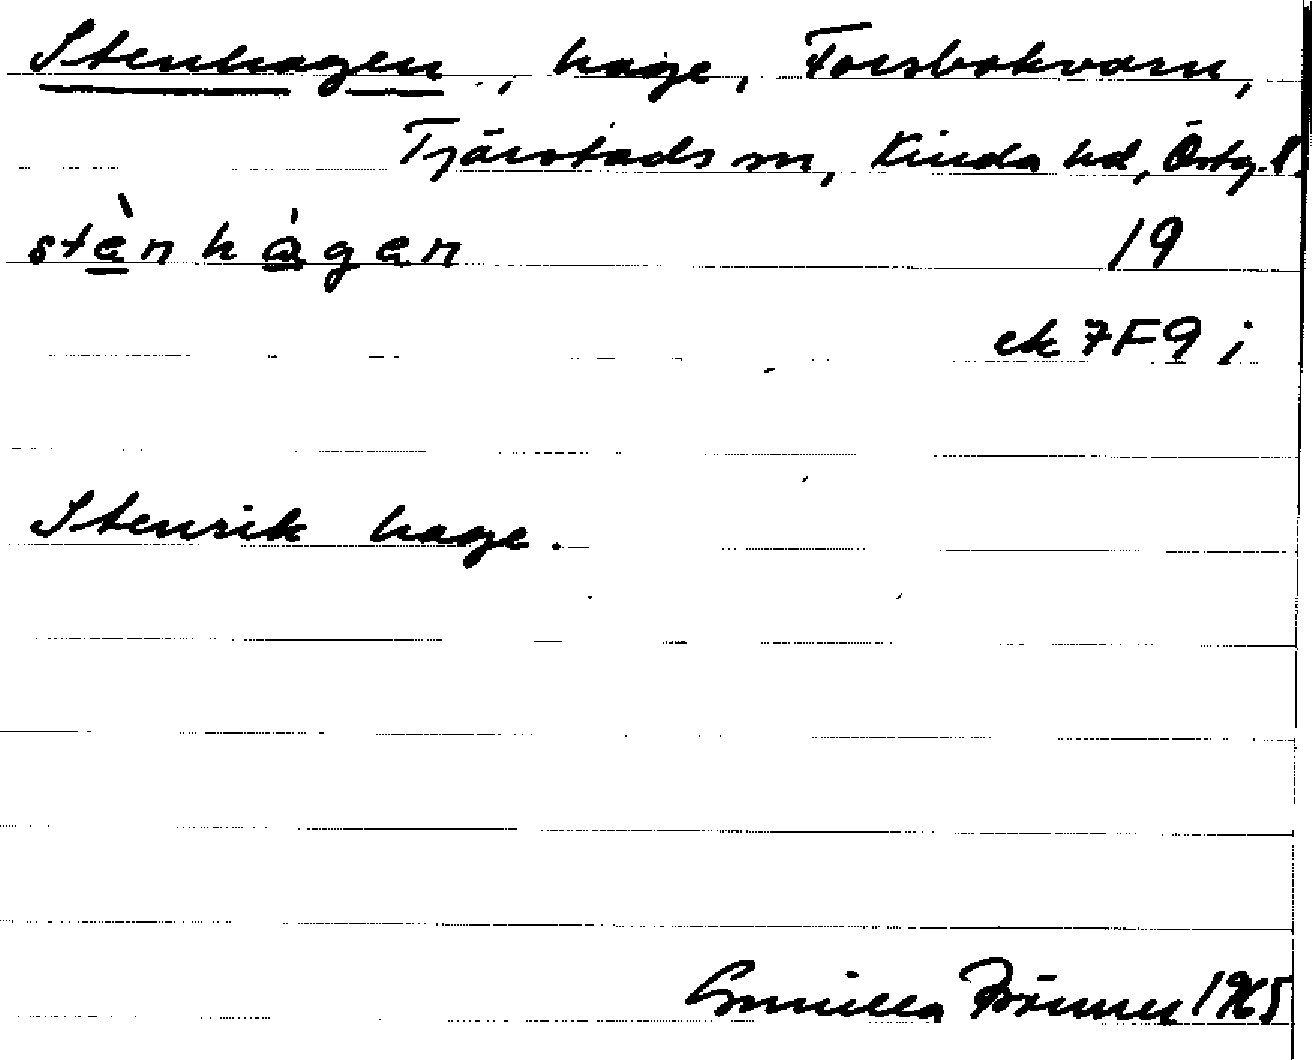 Stenhagen, hage, Forsbokvarn,
Tjärstads sn, Kinda hd, Östg. l.
stènhágan 19
ek 7F9 i
Stenrik hage.
Gunilla 1965